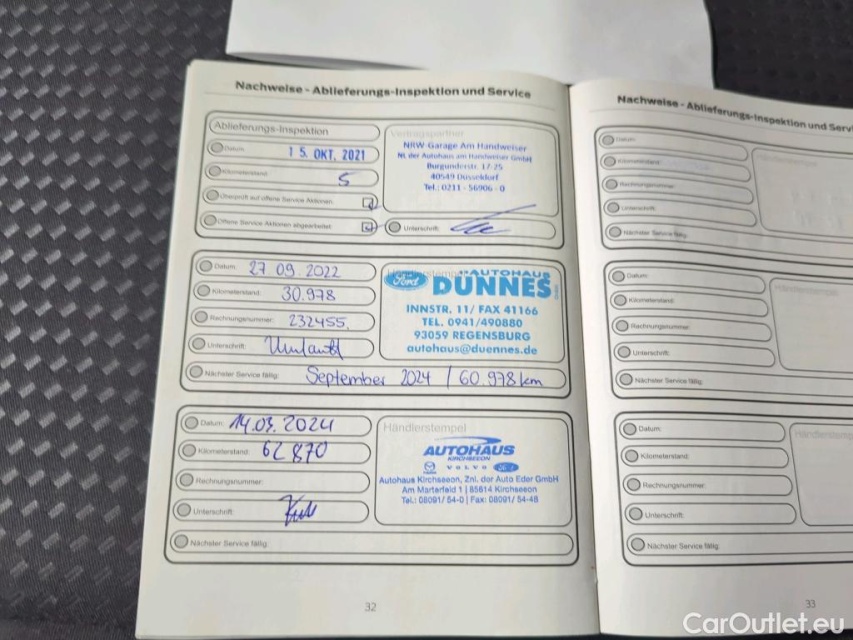 Nachweise - Ablieferungs-Inspektion und Service
Ablieferungs-Inspektion
Datum: 15. OKT. 2021
Kilometerstand: 5
Überprüft auf offene Service Aktionen:
Offene Service Aktionen abgearbeitet:
Vertragspartner
NRW-Garage Am Handweiser
NL der Autohaus am Handweiser GmbH
Burgunderstr. 17-25
40549 Düsseldorf
Tel.: 0211 - 56906 - 0
Unterschrift:
Datum: 27 09. 2022
Kilometerstand: 30.978
Rechnungsnummer: 232455
Unterschrift:
Nächster Service fällig: September 2024 / 60.978 km
Ford AUTOHAUS
DÜNNES
INNSTR. 11/ FAX 41166
TEL. 0941/490880
93059 REGENSBURG
autohaus@duennes.de
Datum: 14.03.2024
Kilometerstand: 62 870
Rechnungsnummer:
Unterschrift:
Nächster Service fällig:
Händlerstempel
AUTOHAUS
KIRCHSEEON
VOLVO
Autohaus Kirchseeon, Znl. der Auto Eder GmbH
Am Marterfeld 1 | 85614 Kirchseeon
Tel.: 08091/ 54-0 | Fax: 08091/ 54-48
32
Nachweise - Ablieferungs-Inspektion und Servi
Datum:
Kilometerstand:
Rechnungsnummer:
Unterschrift:
Nächster Service fällig:
Datum:
Kilometerstand:
Rechnungsnummer:
Unterschrift:
Nächster Service fällig:
Datum:
Kilometerstand:
Rechnungsnummer:
Unterschrift:
Nächster Service fällig:
33
CarOutlet.eu